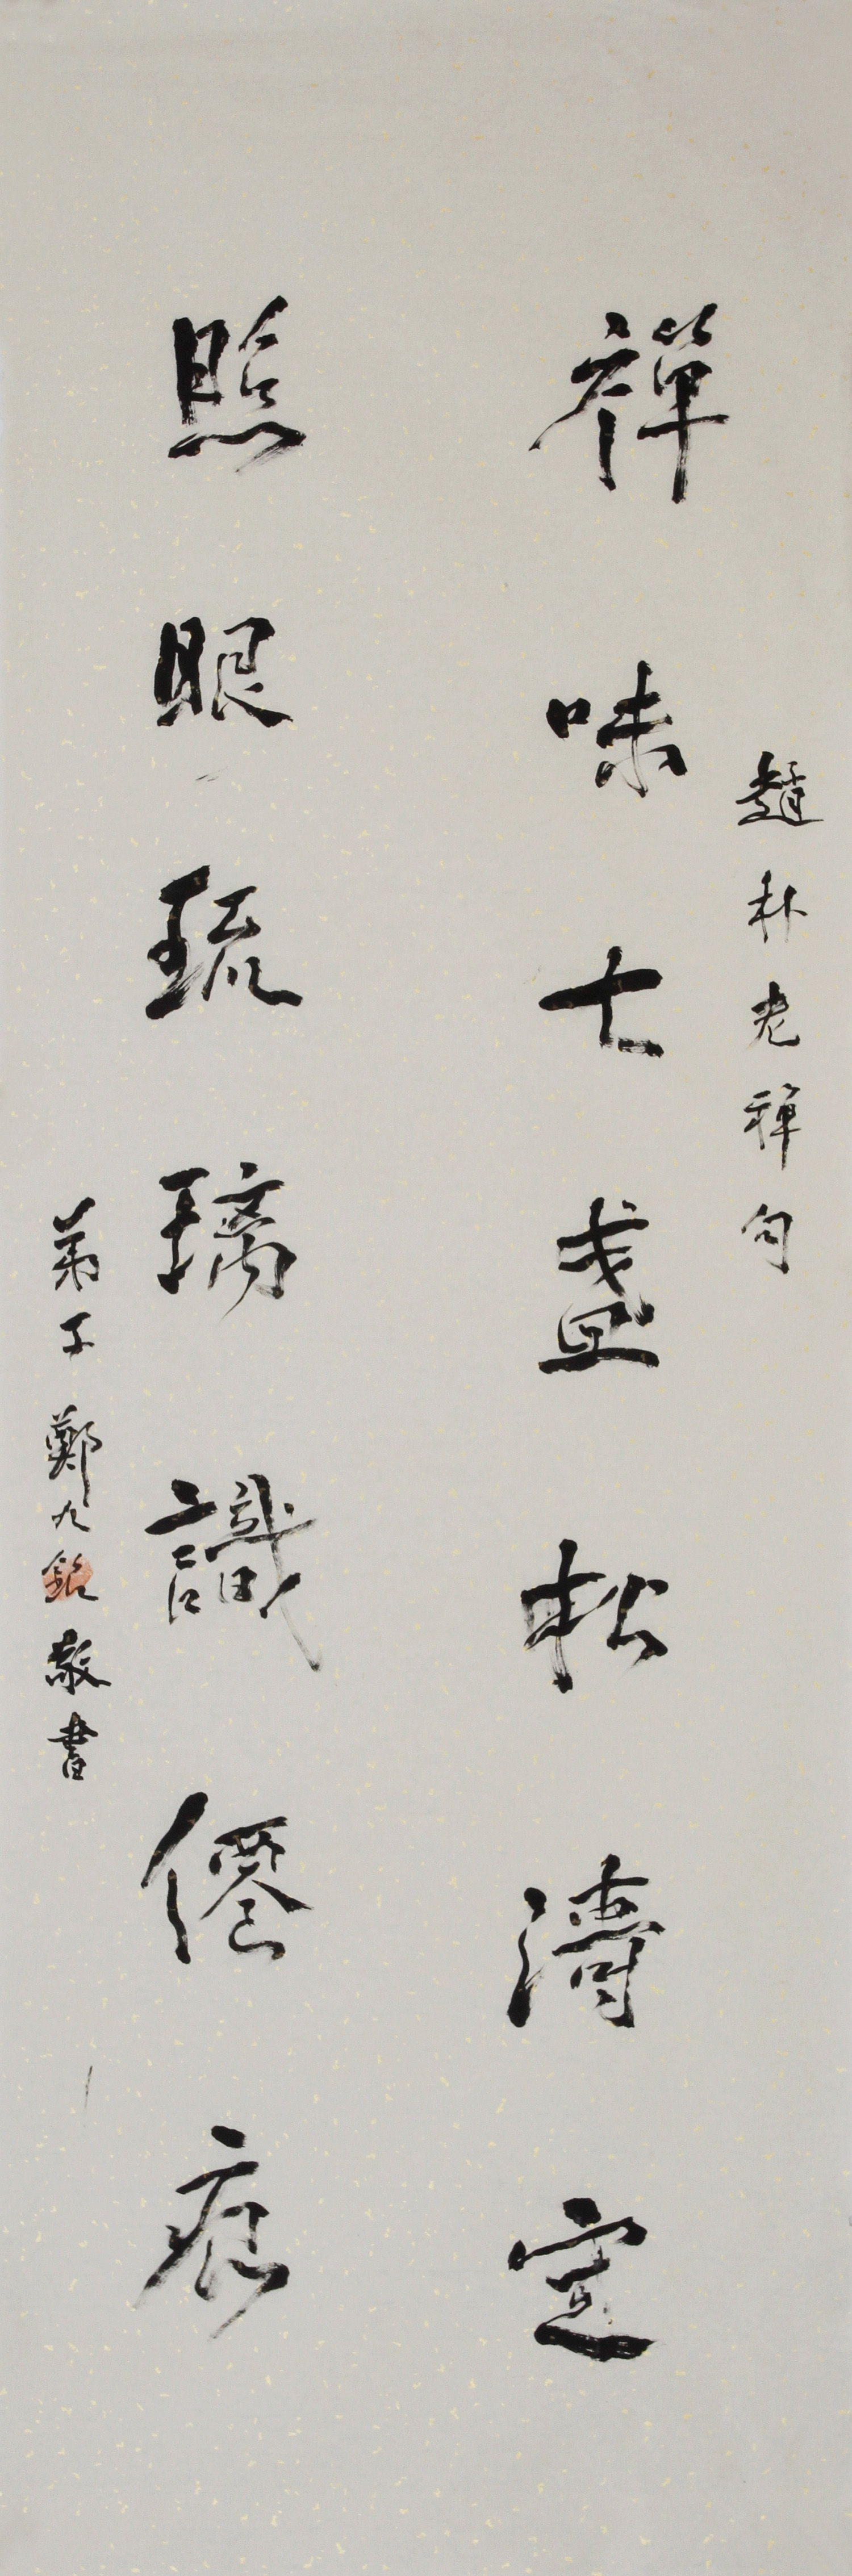 趙朴老禪句
禪味七盞松濤定
照眼琉璃識僊痕
弟子鄭九銘敬書